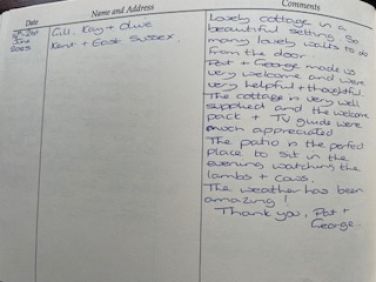 Date
Name and Address
Comments
June
2025
Gill, Kay + Olive
Kent + East Sussex.
Lovely cottage in a
beautiful setting. So
many lovely walks to do
from the door.
Pat + George made us
very welcome and were
very helpful + thoughtful.
The cottage is very well
supplied and the welcome
pack + TV guide were
much appreciated
The patio is the perfect
place to sit in the
evening watching the
lambs + cows.
The weather has been
amazing!
Thank you, Pat +
George.